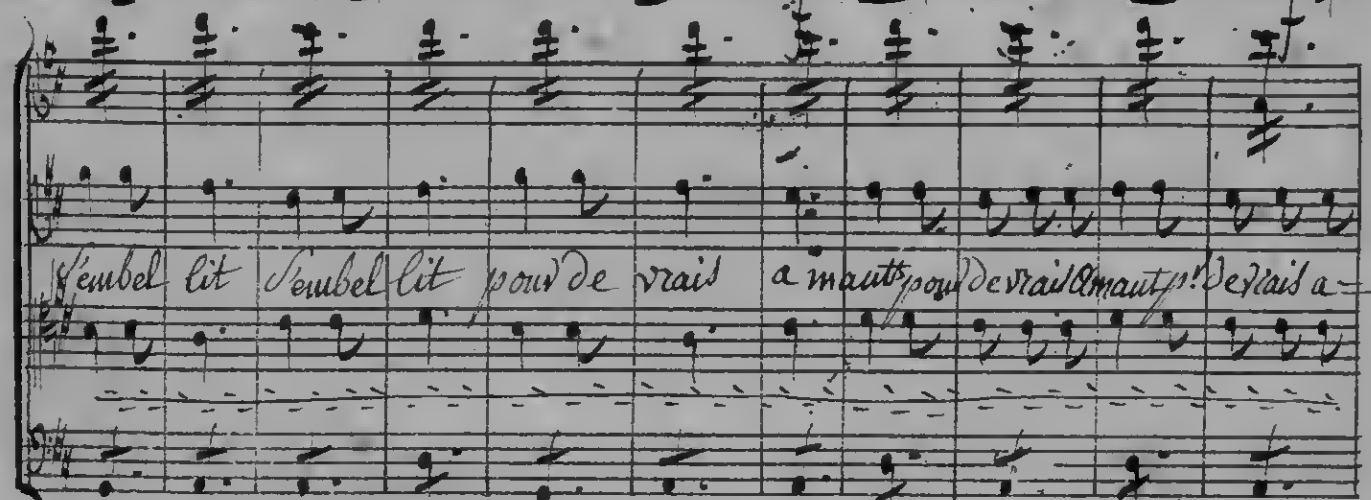 S'embel lit S'embel lit pour de vrais a mants pour de vrais amants pr. de vrais a=